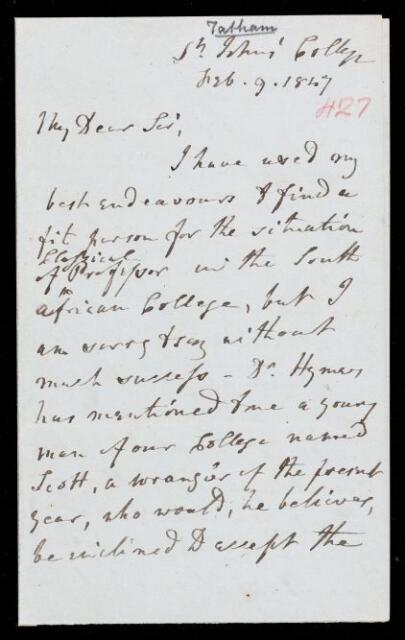 Tatham
St. Johns' College
Feb. 9. 1847
427
My Dear Sir,
I have used my
best endeavours to find a
fit person for the situation
Classical
of Professor in the South
African College, but I
am sorry to say without
much success - Dr. Hymers
has mentioned to me a young
man of our College named
Scott, a wrangler of the present
year, who would, he believes,
be inclined to accept the